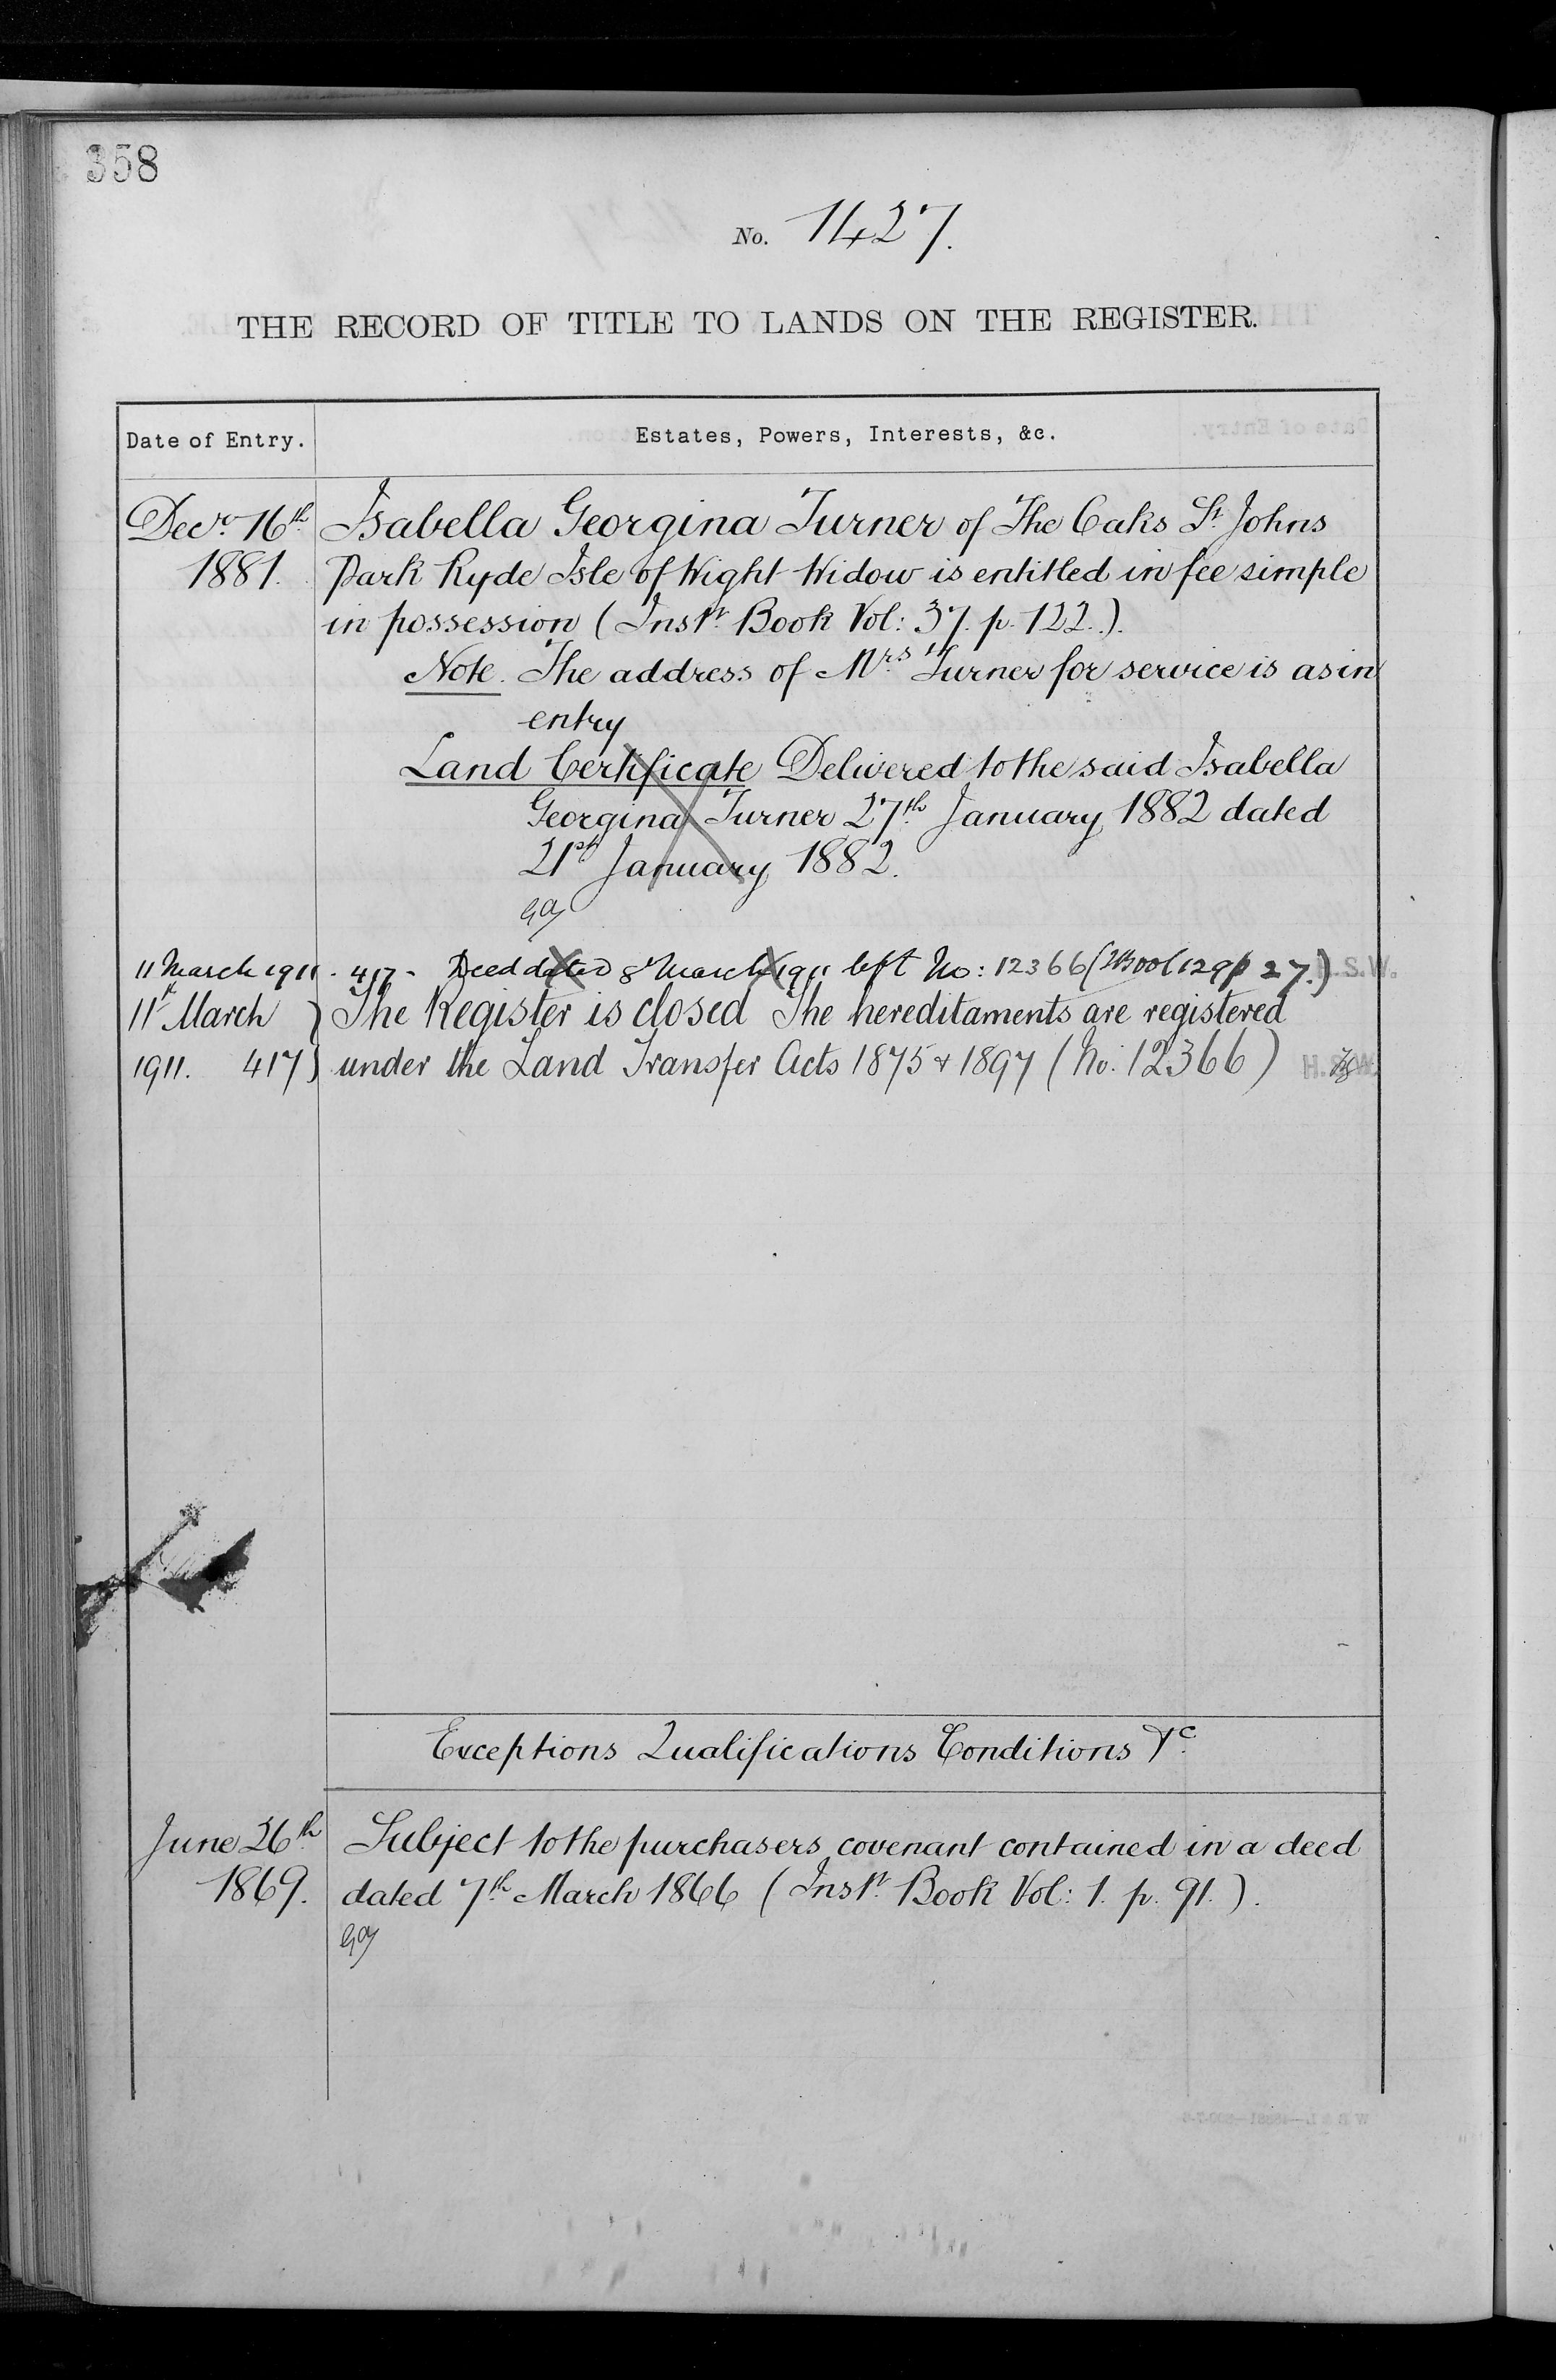 358
No. 1427.
THE RECORD OF TITLE TO LANDS ON THE REGISTER.
Date of Entry. Estates, Powers, Interests, &c.
Decr. 16th Isabella Georgina Turner of The Oaks St. Johns
1881. Park Ryde Isle of Wight Widow is entitled in fee simple
in possession (Inst. Book Vol: 37. p. 122.).
Note. The address of Mrs Turner for service is as in
entry
Land Certificate Delivered to the said Isabella
Georgina Turner 27th January 1882 dated
21st January 1882.
11 March 1911 - 417 - Deed dated 8 March 1911 left No: 12366 (129 p 27.) H.S.W.
11th March } The Register is closed The hereditaments are registered
1911. 417 } under the Land Transfer Acts 1875 & 1897 (No: 12366) H.S.W.
Exceptions Qualifications Conditions &c.
June 26th Subject to the purchasers covenant contained in a deed
1869. dated 7th March 1866 (Inst. Book Vol: 1. p. 91.).